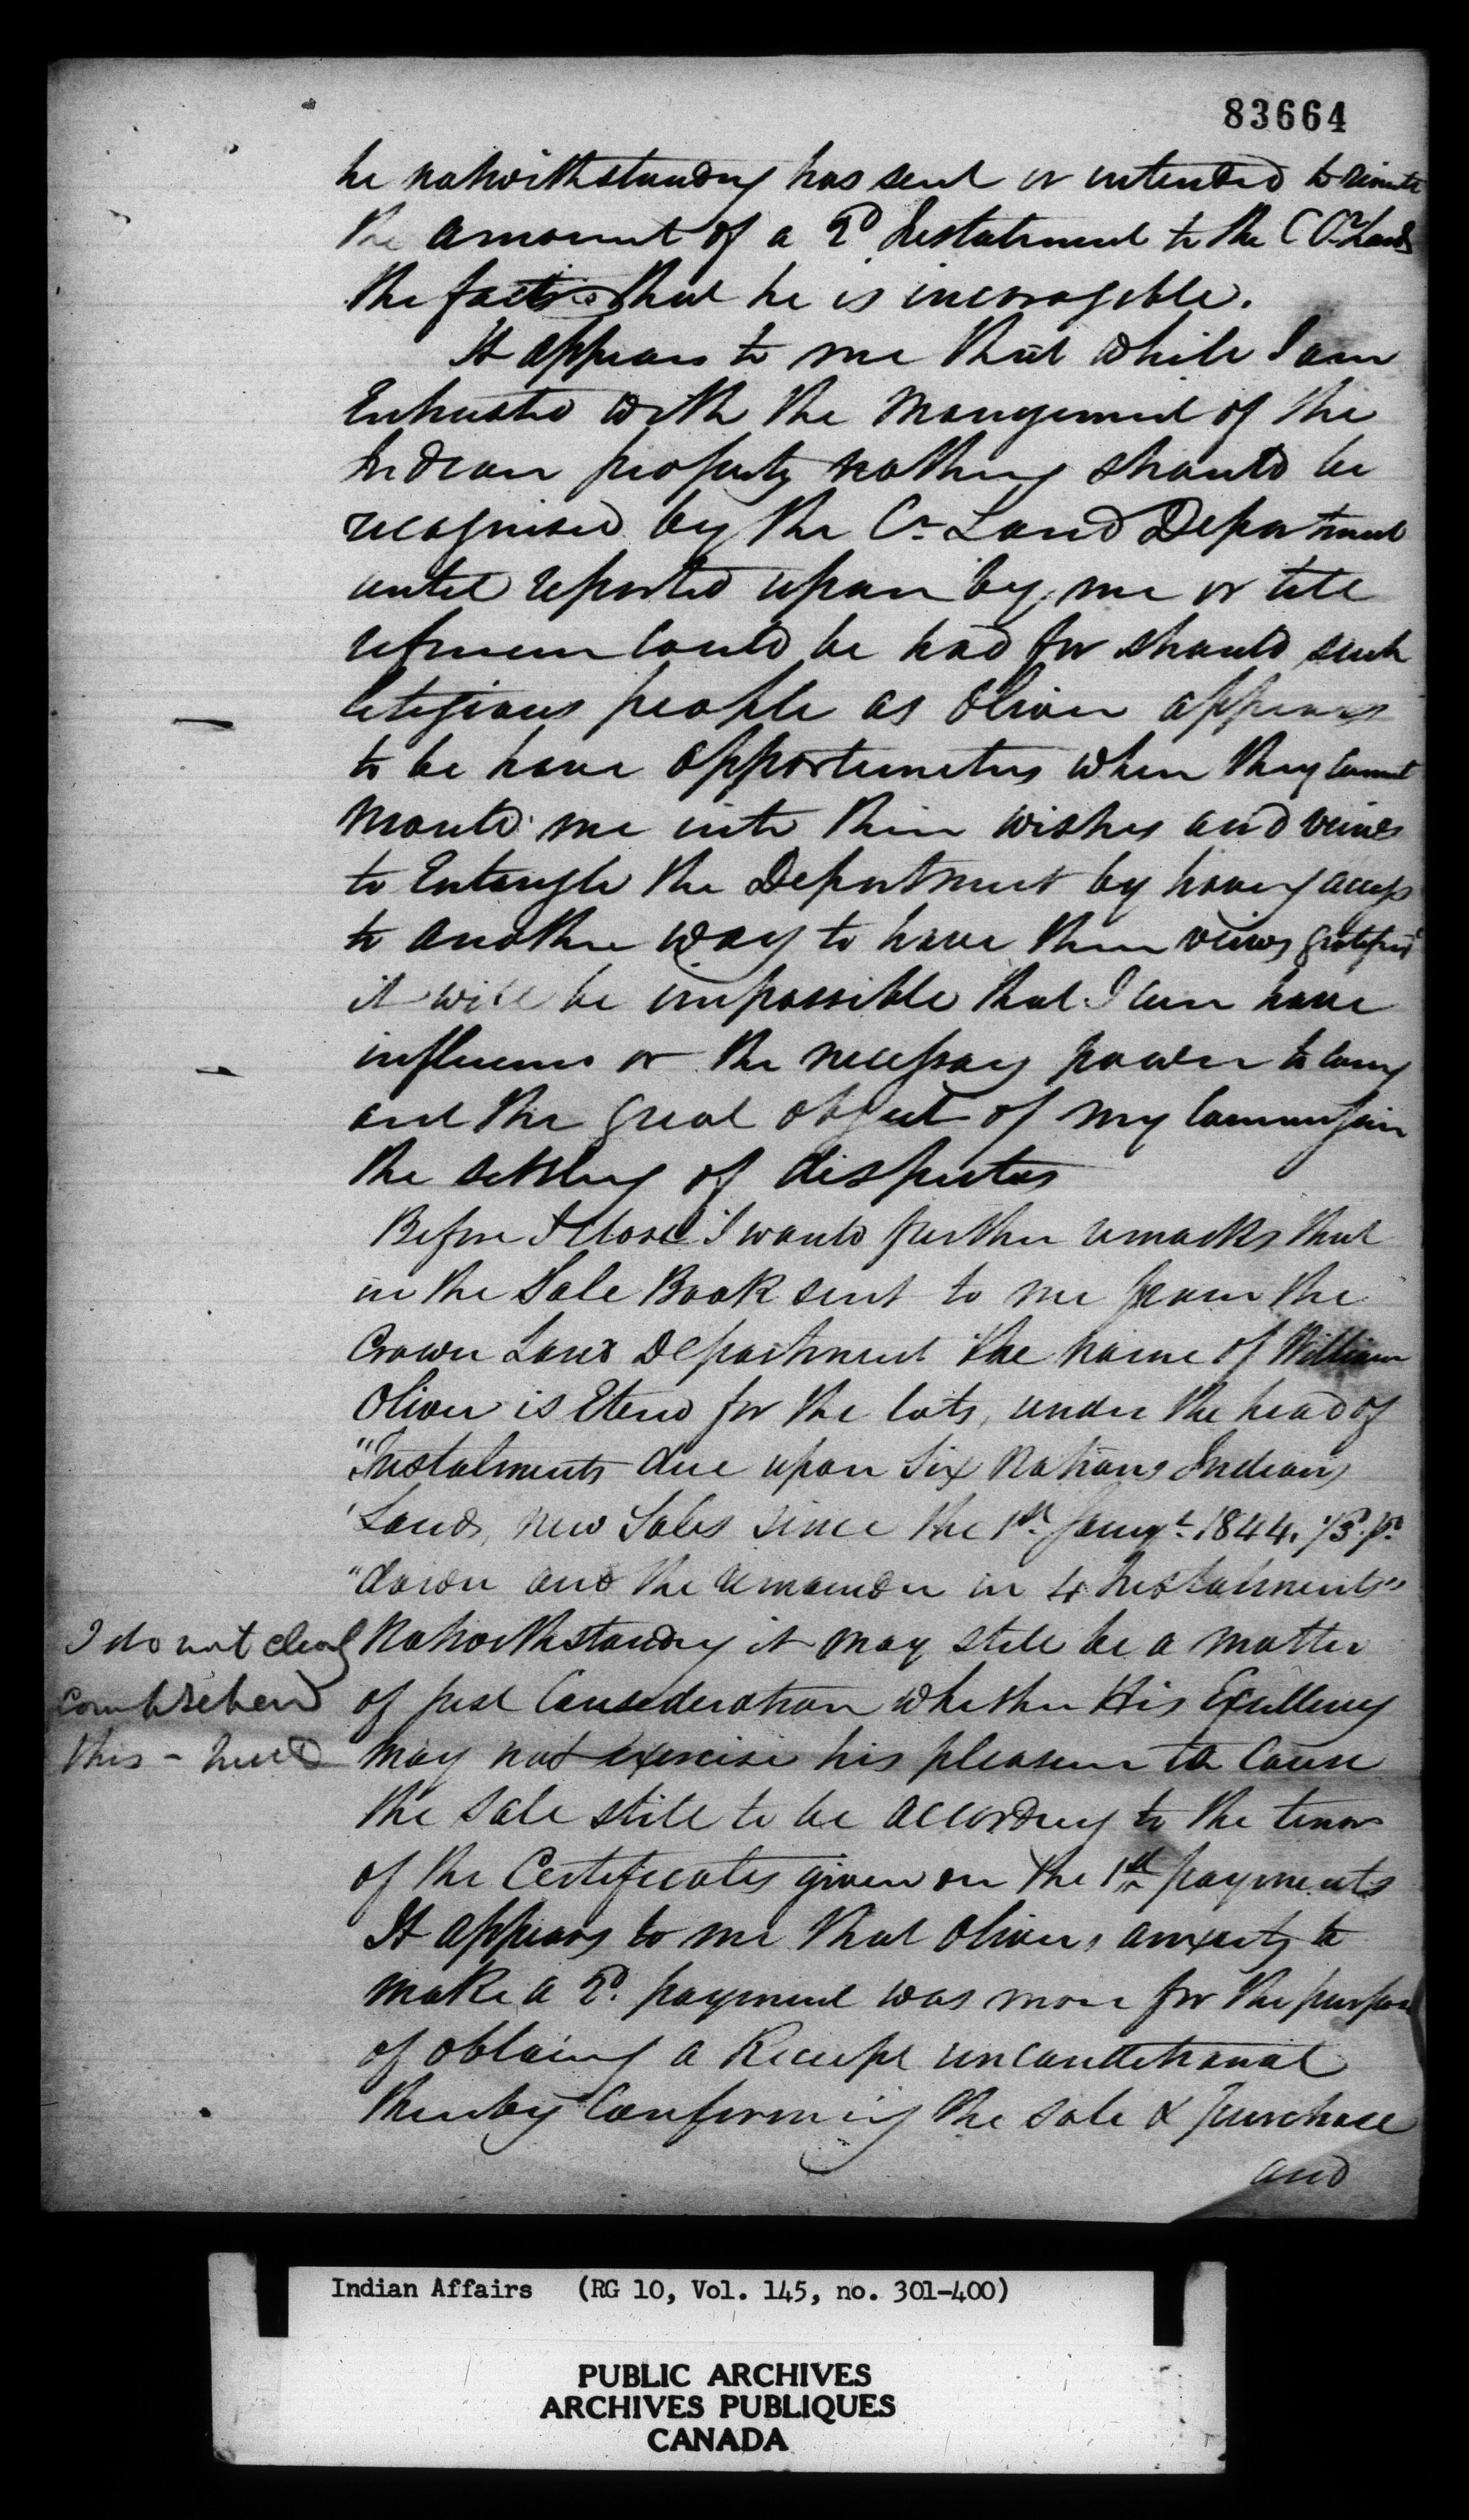 83664
he notwithstanding has sent or intended to remit
the amount of a 2d Instalment to the C Or Lands
the fact is that he is incorrigible.
It appears to me that while I am
Entrusted with the Management of the
Indian property nothing should be
recognised by the Cn Land Department
until reported upon by me or till
reference could be had for should such
litigious people as Oliver appears
to be have opportunities when they cannot
mould me into their wishes and views
to Entangle the Department by having access
to another way to have their views gratified
it will be impossible that I can have
influence or the necessary power to carry
out the great object of my Commission
the settling of disputes
Before I close I would further remark that
in the Sale Book sent to me from the
Crown Land Department the name of William
Oliver is Eterd for the lots, under the head of
"Instalments due upon Six Nations Indian
"Lands, new Sales since the 1st Jany 1844. 1/3d pd
"down and the remainder in 4 Instalments"
Notwithstanding it may still be a matter
of just Consideration whether His Excellency
may not exercise his pleasure to Cause
the sale still to be according to the tenor
of the Certificates given on the 1st payments
It appears to me that Olivers anxiety to
make a 2d. payment was more for the purpose
of obtaing a Receipt unconditional
thereby Confirming the sale & purchase
and
I do not clearly
comprehend
this -
Indian Affairs (RG 10, Vol. 145, no. 301-400)
PUBLIC ARCHIVES
ARCHIVES PUBLIQUES
CANADA